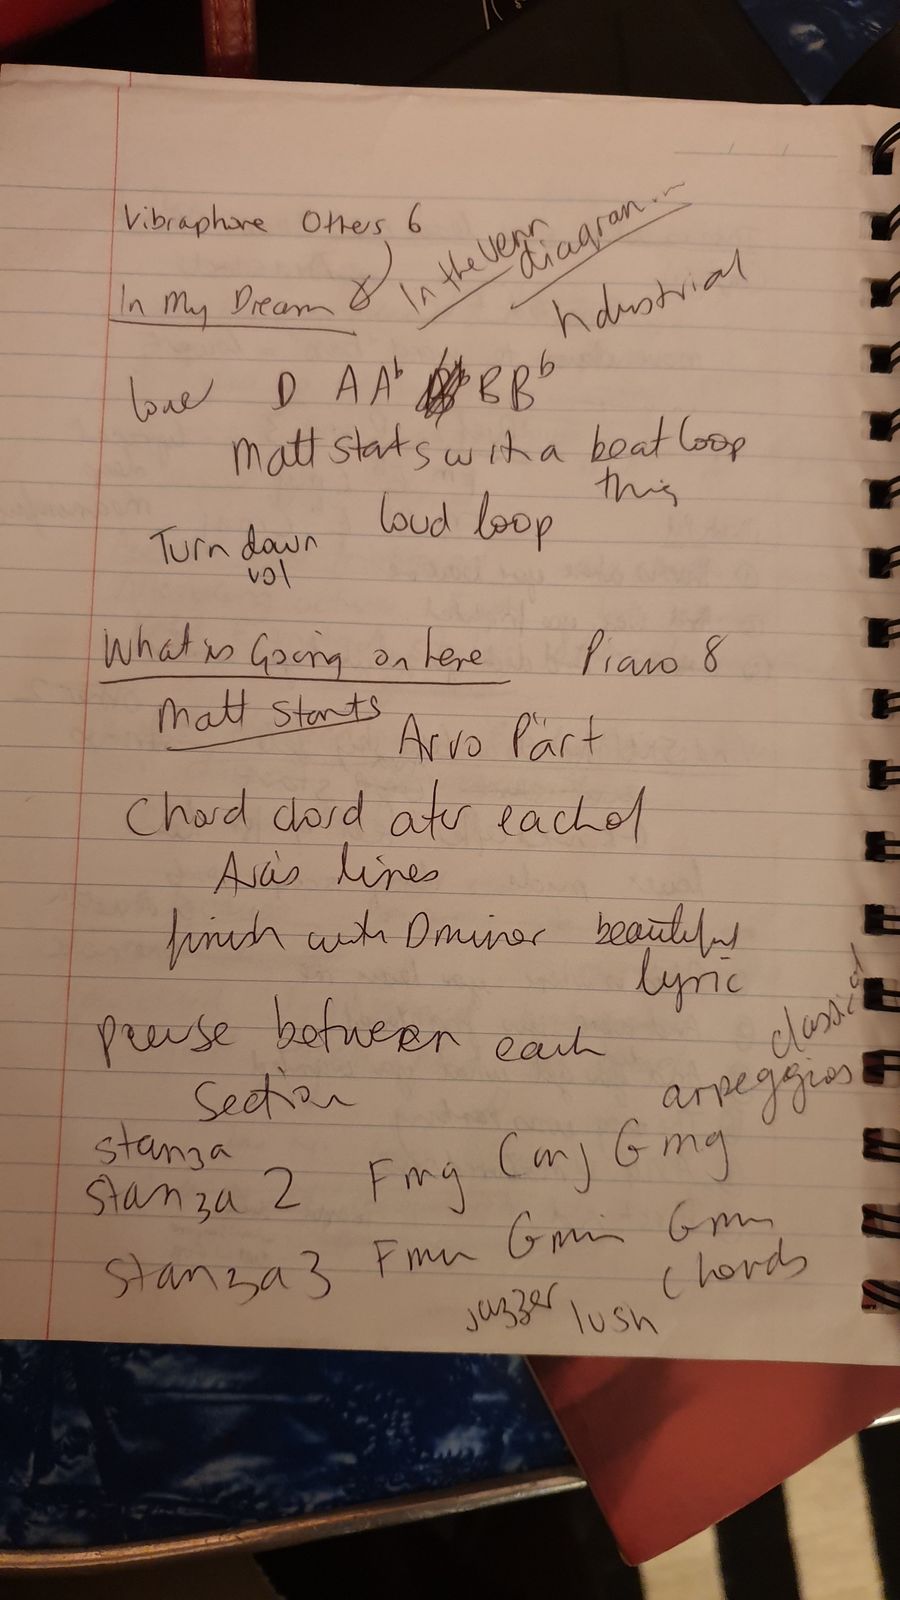 Vibraphone Others 6
In My Dream
In the Venn
diagram...
Industrial
low D A Ab B Bb
Matt starts with a beat loop
thing
loud loop
Turn down
vol
What is Going on here Piano 8
Matt Starts
Arvo Pärt
Chord chord after each of
lines
finish with D minor beautiful
lyric
pause between each
Section
classical
arpeggios
stanza
stanza 2 Fmg Cmj Gmg
stanza 3 Fmin Gmin Gmin
chords
jazzer lush